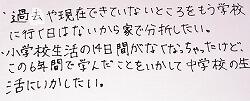 ・過去や現在できていないところをもう学校
に行く日はないから家で分析したい。
・小学校生活の件日間がなくなっちゃったけど、
この6年間で学んだことをいかして中学校の生
活にいかしたい。